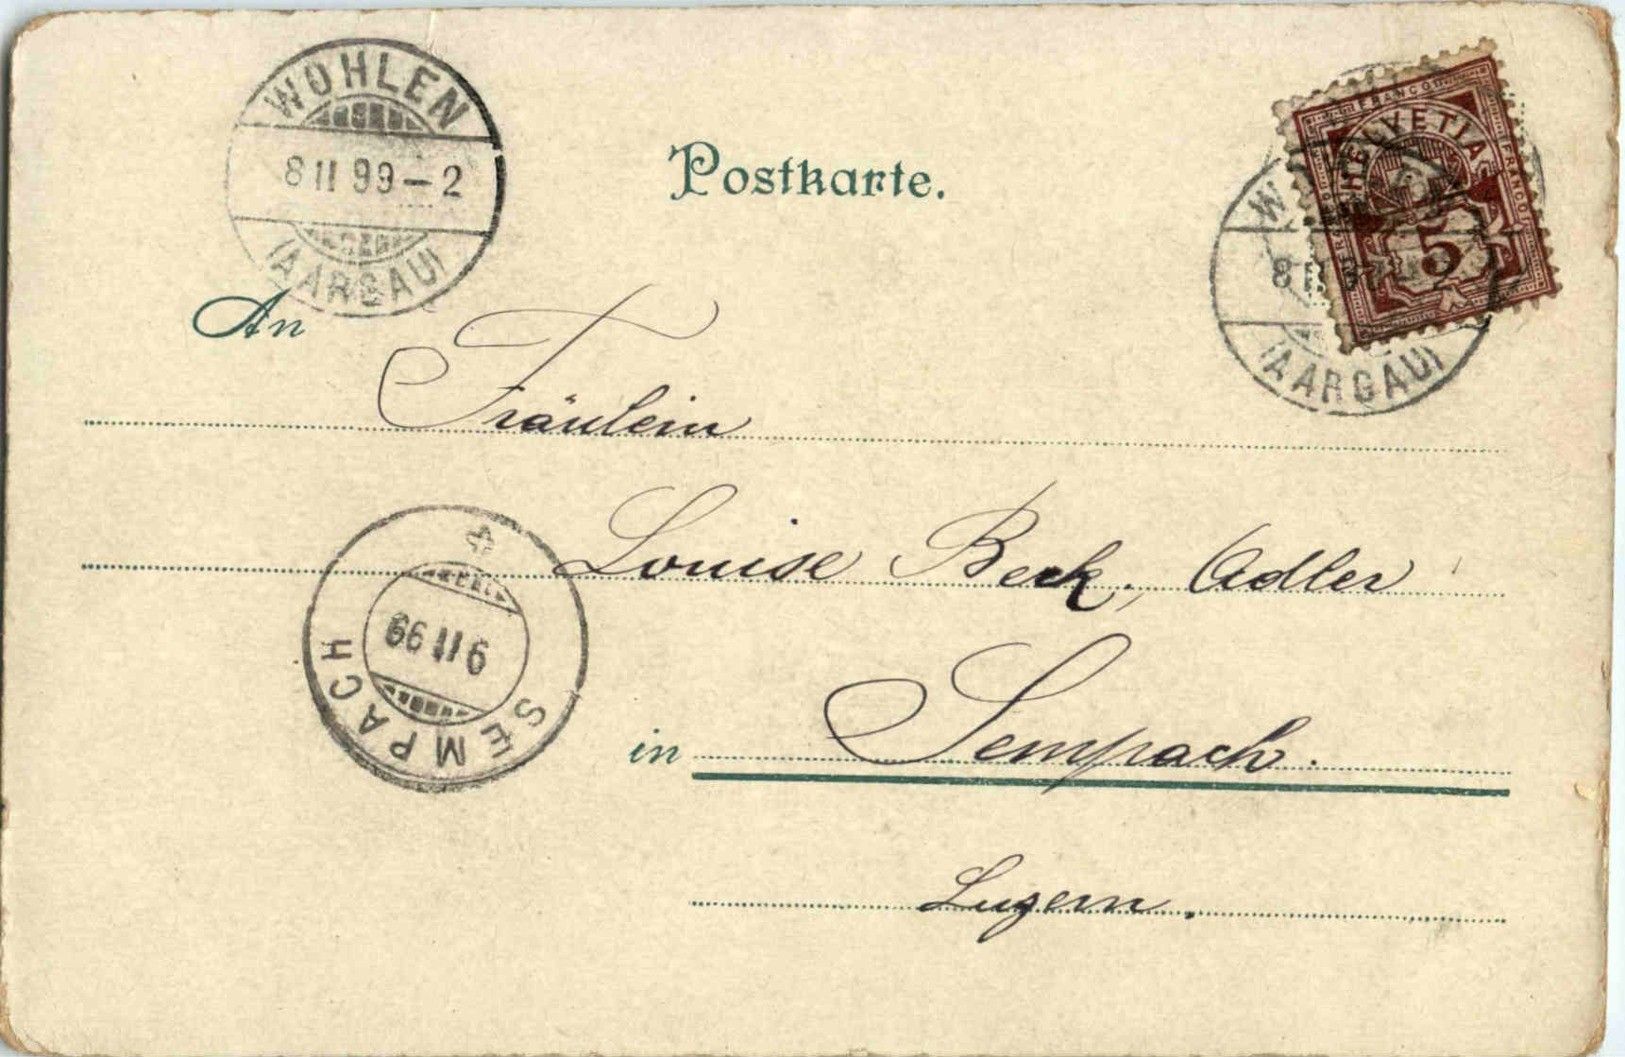 WOHLEN
8 II 99 – 2
(AARGAU)
Postkarte.
FRANCO
HELVETIA
FRANCO
5
8 II
2
(AARGAU)
An
Fräulein
Louise Beck, Adler
SEMPACH
9 II 99
in Sempach.
Luzern.